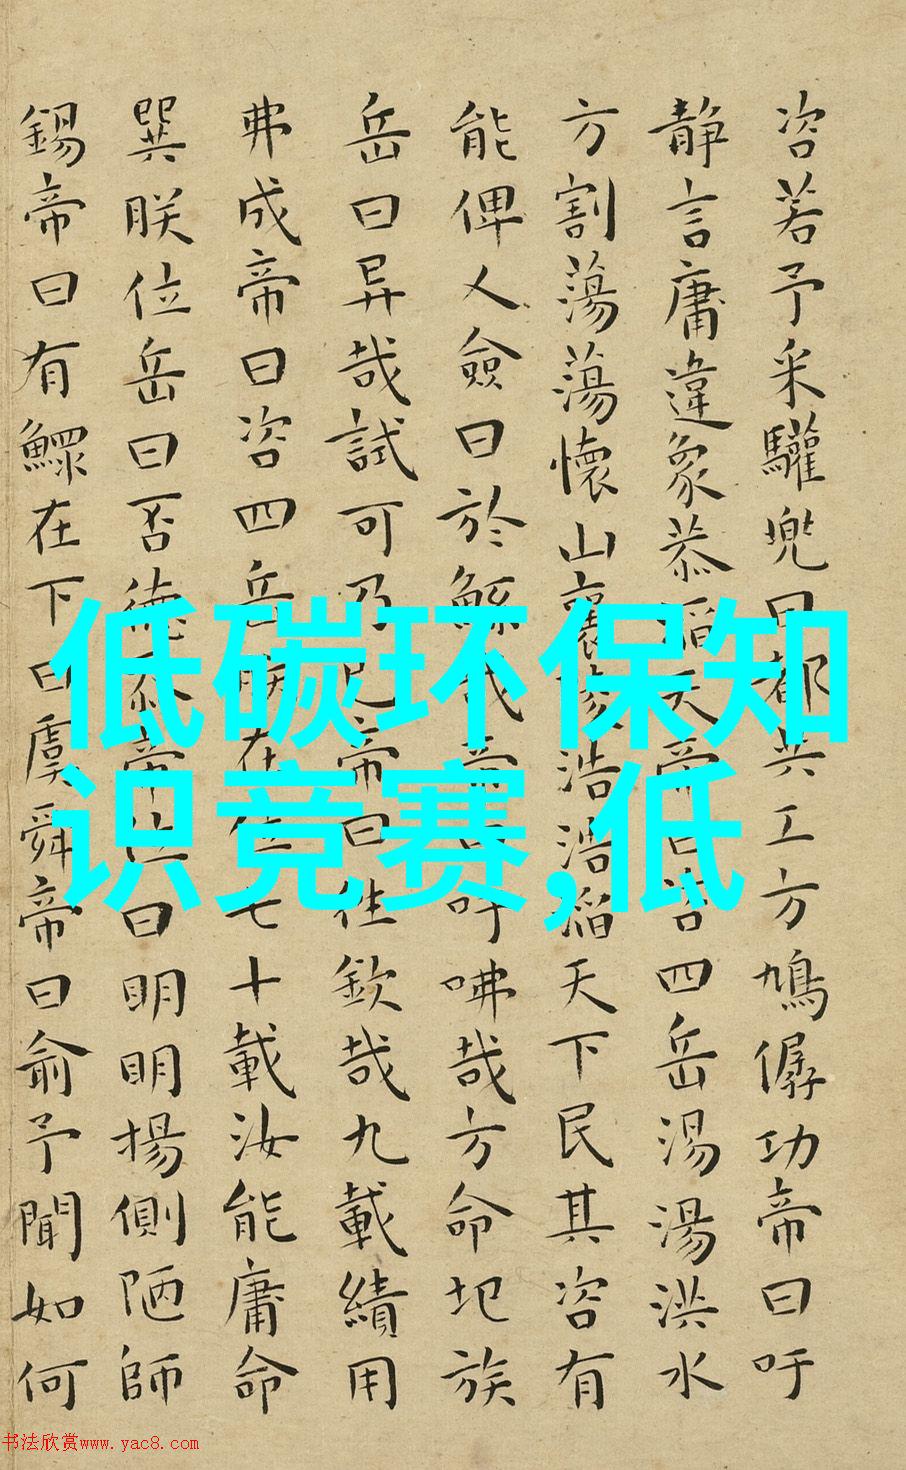 咨若予采驩兜曰都共工方鳩僝功帝曰吁
静言庸違象恭滔天帝曰咨四岳湯湯洪水
方割蕩蕩懷山襄陵浩浩滔天下民其咨有
能俾乂僉曰於鯀哉帝曰吁咈哉方命圮族
岳曰异哉試可乃已帝曰往欽哉九載績用
弗成帝曰咨四岳朕在位七十載汝能庸命
巽朕位岳曰否德忝帝位曰明明揚側陋師
錫帝曰有鰥在下曰虞舜帝曰俞予聞如何
低碳环保知
识竞赛,低
书法欣赏www.yac8.com